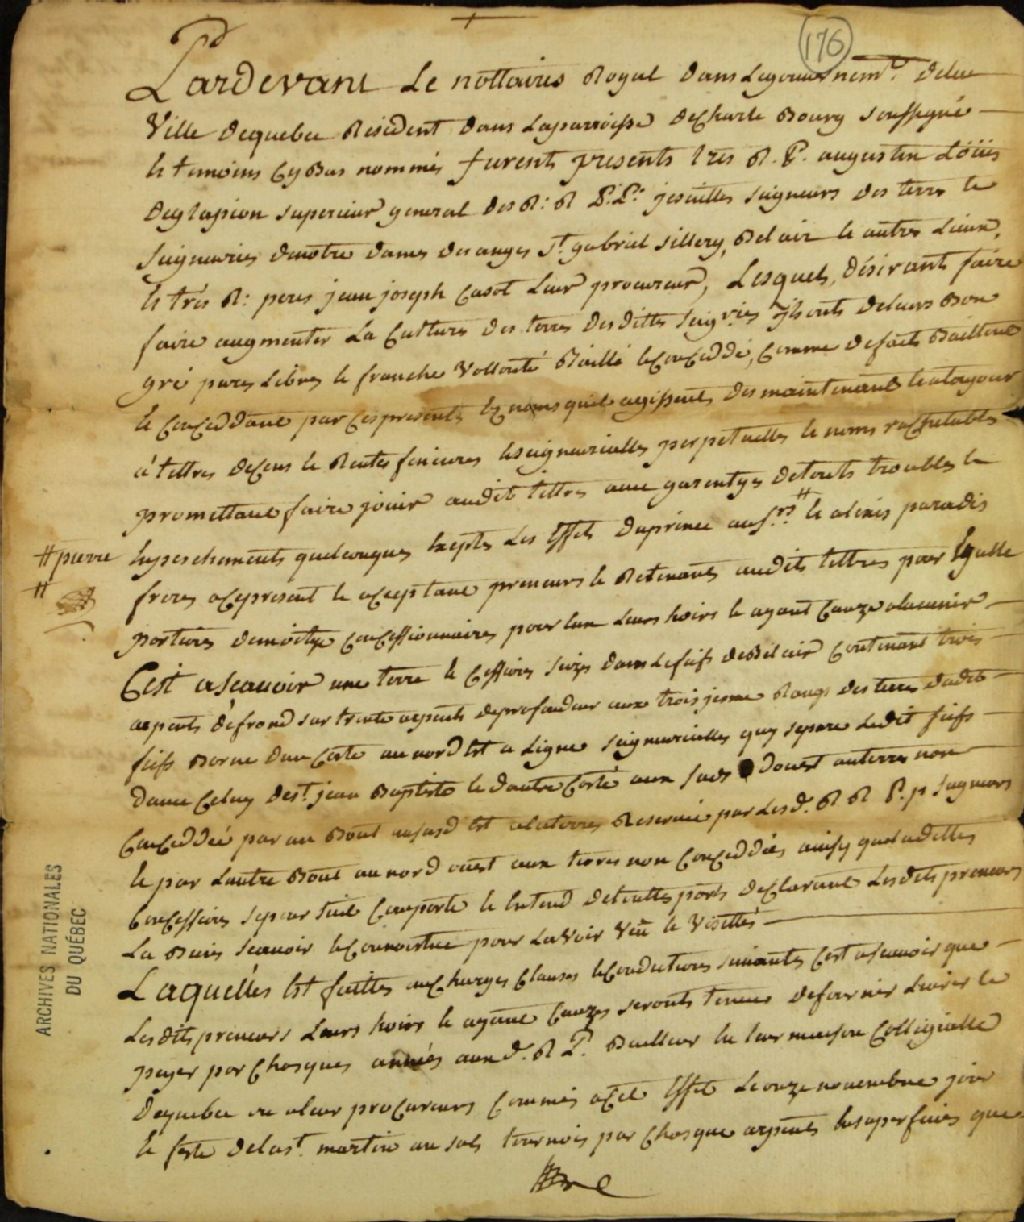 176
Pardevant Le nottaires Royal dans Legouvernemt. dela
Ville dequebec Résident dans Laparroisse deCharle Bourg soussigné
et temoins Cy Bas nommés furent presents tres R. P. augustin Löüis
deglapion superieur general des R: R P.P: jesuittes seigneurs des terre et
seigneuries denotre dames des anges St. gabriel sillery, Belair et autres Lieux,
et très R: peres jean joseph Casot Leur procureur, Lesquels, désirants faire
faire augmenter La Culture des terres desdittes seigries. ils onts deleurs Bon
gré pures Libres et franche Vollonté Baillé et Conceddé, Comme defaits Baillent
et Conceddant par Cespresents Ez noms quil agissent des maintenant et atoujour
à tittres deCens et Rentes fonciere et seigneurialles perpetuelles et noms rachetables
promettant faire jouir audit tittres avec garentyes detouts troubles et
# pierre
#
Empeschements quelconques Excepté Les Effets duprince aux srs. # et alexis paradis
freres acepresent et acceptant preneurs et Retenants audits tittres pour Egalle
portions demoitye Concessionnaires pour Eux Leurs hoirs et ayant Cauze alavenir
C'est ascavoir une terre et Cession size dans Lefiefs deBelair Contenant trois
arpents défrond sur trente arpents deprofondeur aux troisieme Rangs des terre dudit
fiefs Borné dun Coste au nord Est a Ligne seigneurialles quy separe Ledit fiefs
davec Celuy de st. jean Baptiste et dautre Costé aux sud ouest auterre non
Conceddée par un Bout ausud Est alaterres Reservée par Les d. R R P. p seigneurs
et par Lautre Bout au nord ouest aux terres non Conceddées ainsy queladittes
Concessions sepoursuit Comporte et Entend detouttes parts declarant Lesdits preneurs
La Bien scavoir et Connoistre pour Lavoir Vüe et Visittés
Laquelles Est faittes auCharges Clauses et Conditions suivantes Cest ascavoir que
Lesdits preneurs Leurs hoirs et ayant Cauzes seronts tenus defournir Livrer et
payer par Chasques années aux d. R P. Bailleur En leur maison Collegialle
dequebec ou aleur procureurs Commis acet Effet Leonze novembre jour
et feste delast. martin un sols tournois par Chasque arpents ensuperficies que
ARCHIVES NATIONALES
DU QUÉBEC